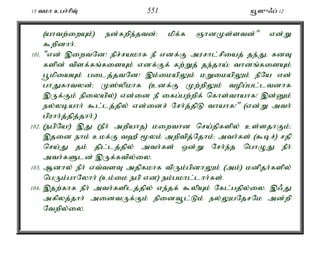 13 வமா உபர்ரிஷ் 551 யூஸுஃப் 12
(யாவற்றையும்) நன்கறிந்தவன்; மிக்க ஞானமுள்ளவன்" என்று
கூறினார்.
101. "என் இறைவனே! நிச்சயமாக நீ எனக்கு அரசாட்சியைத் தந்து, கனவு
களின் விளக்கங்களையும் எனக்குக் கற்றுத் தந்தாய்; வானங்களையும்
பூமியையும் படைத்தவனே! இம்மையிலும் மறுமையிலும் நீயே என்
பாதுகாவலன்; முஸ்லீமாக (உனக்கு முற்றிலும் வழிப்பட்டவனாக
இருக்கும் நிலையில்) என்னை நீ கைப்பற்றிக் கொள்வாயாக! இன்னும்
நல்லடியார் கூட்டத்தில் என்னைச் சேர்த்திடு வாயாக!" (என்று அவர்
பிரார்த்தித்தார்.)
102. (நபியே) இது (நீர் அறியாத) மறைவான செய்திகளில் உள்ளதாகும்;
இதனை நாம் உமக்கு வஹீ மூலம் அறிவித்தோம்; அவர்கள் (கூடிச்) சதி
செய்து தம் திட்டத்தில் அவர்கள் ஒன்று சேர்ந்த பொழுது நீர்
அவர்களுடன் இருக்கவில்லை.
103. ஆனால் நீர் எவ்வளவு அதிகமாக விரும்பினாலும் (அம்) மனிதர்களில்
பெரும்பாலோர் (உம்மை நபி என) நம்பமாட்டார்கள்.
104. இதற்காக நீர் அவர்களிடத்தில் எந்தக் கூலியும் கேட்பதில்லை. இஃது
அகிலத்தார் அனைவருக்கும் நினைவூட்டும் நல்லுபதேசமே அன்றி
வேறில்லை.